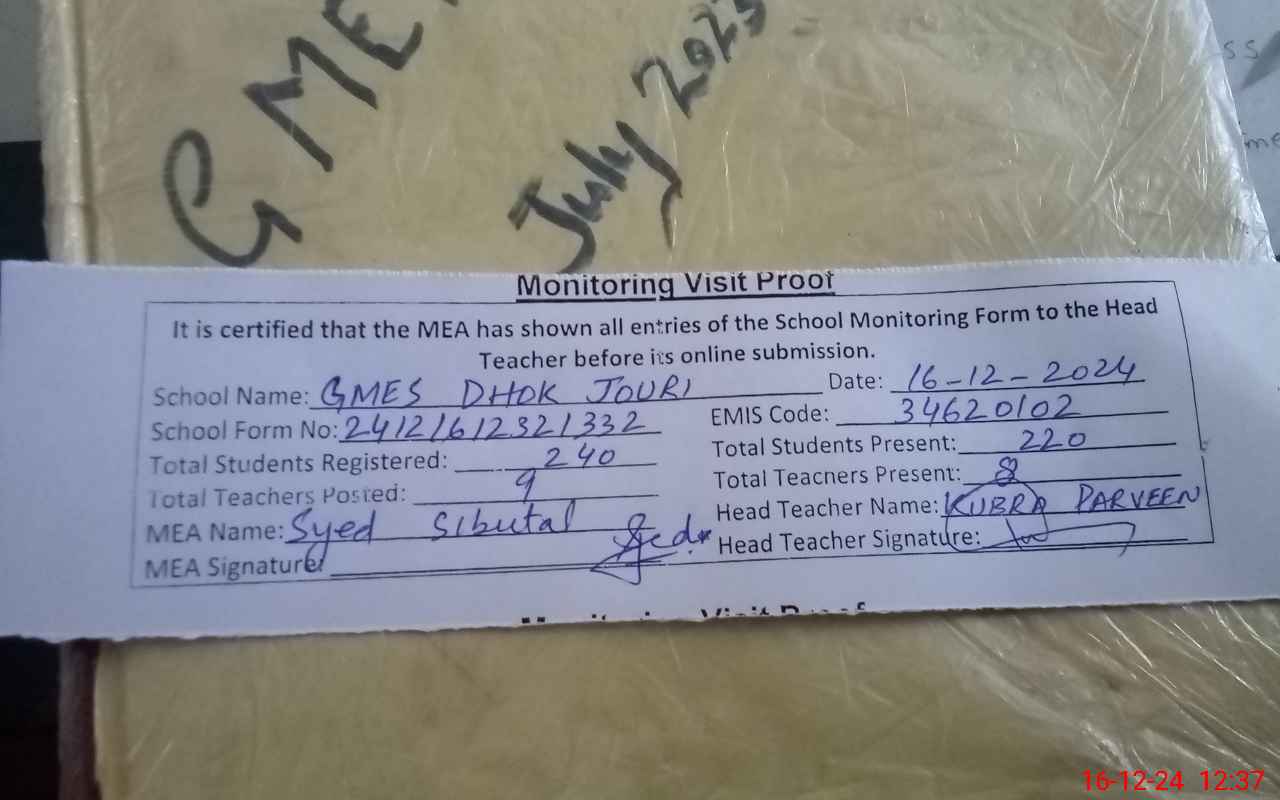 GME
July 2023
ss
me
Monitoring Visit Proof
It is certified that the MEA has shown all entries of the School Monitoring Form to the Head
Teacher before its online submission.
School Name: GMES DHOK JOURI Date: 16-12-2024
School Form No: 24121612321332 EMIS Code: 34620102
Total Students Registered: 240 Total Students Present: 220
Total Teachers Posted: 9 Total Teachers Present: 8
MEA Name: Syed Sibutal Head Teacher Name: KUBRA PARVEEN
MEA Signature: Head Teacher Signature:
Monitoring Visit Proof
16-12-24 12:37